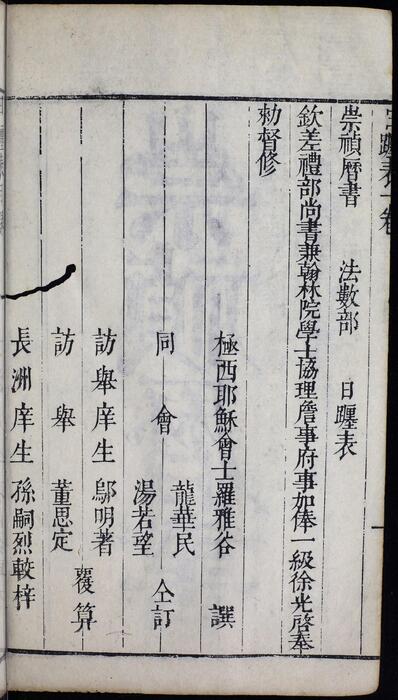 日躔表一卷
崇禎曆書 法數部 日躔表
欽差禮部尚書兼翰林院學士協理詹事府事加俸一級徐光啓奉
勑督修
極西耶穌會士羅雅谷 譔
同會 龍華民 湯若望 仝訂
訪舉庠生 鄔明著
訪舉 董思定 覆算
長洲庠生 孫嗣烈較梓